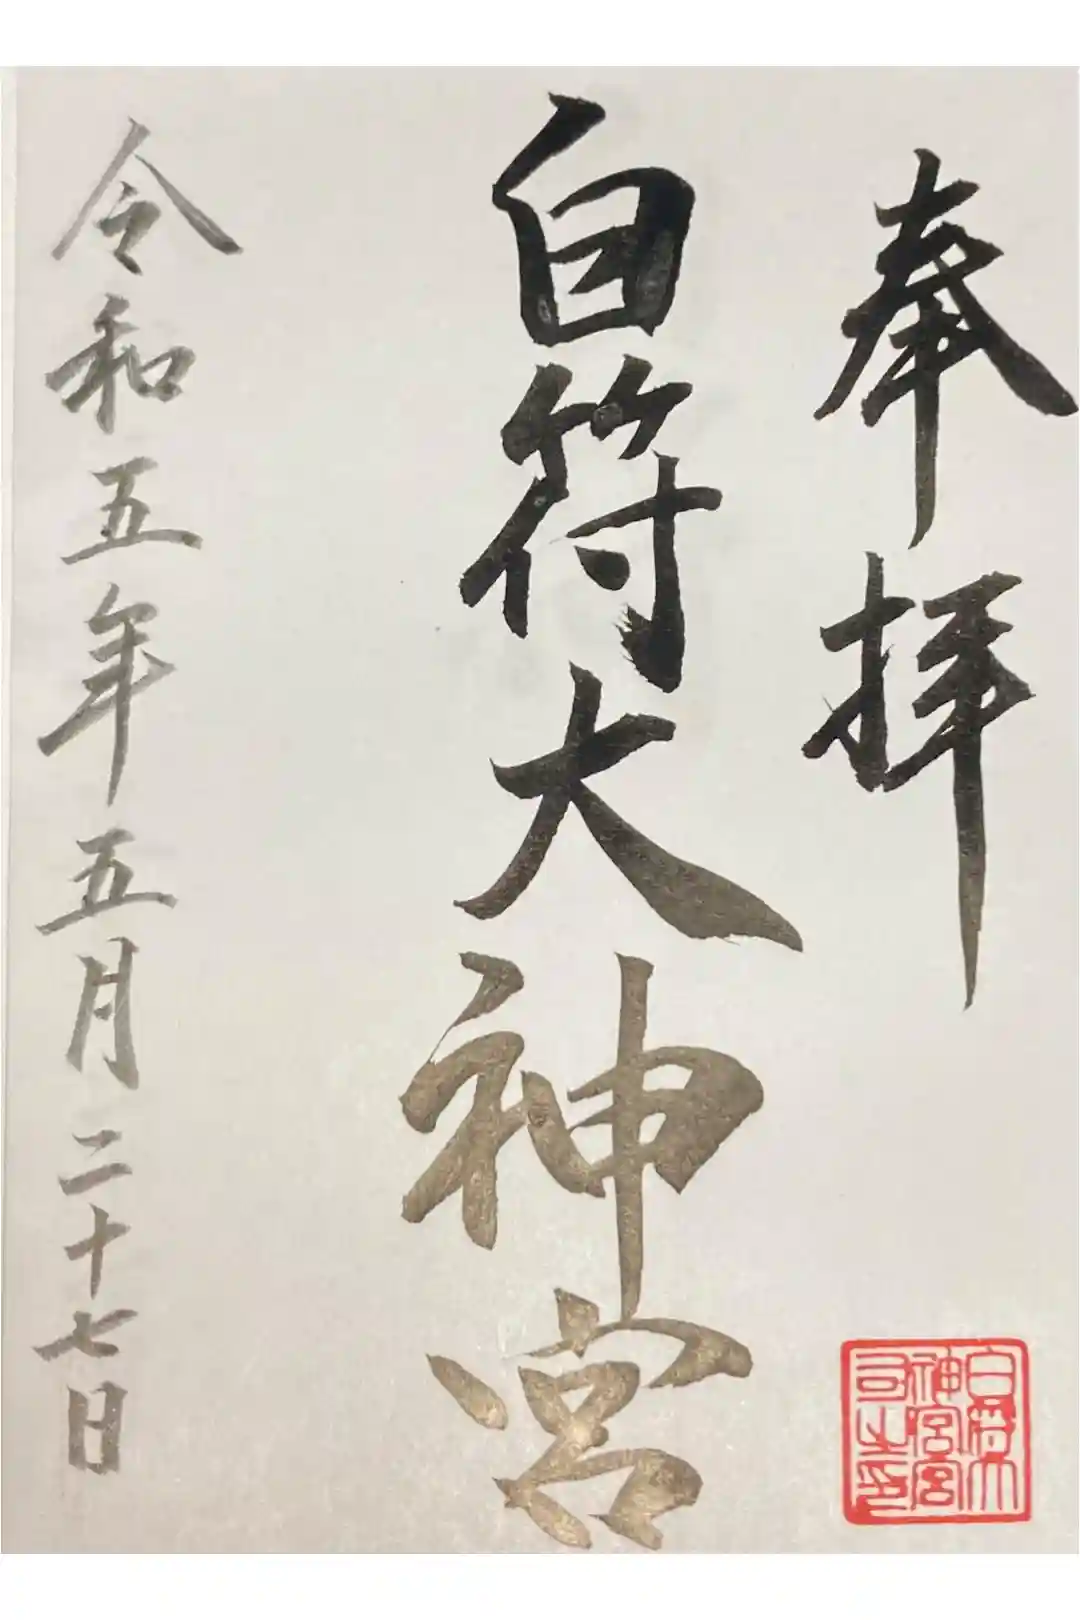 奉拝
白符大神宮
令和五年五月二十七日
白符大
神宮宮
司之印